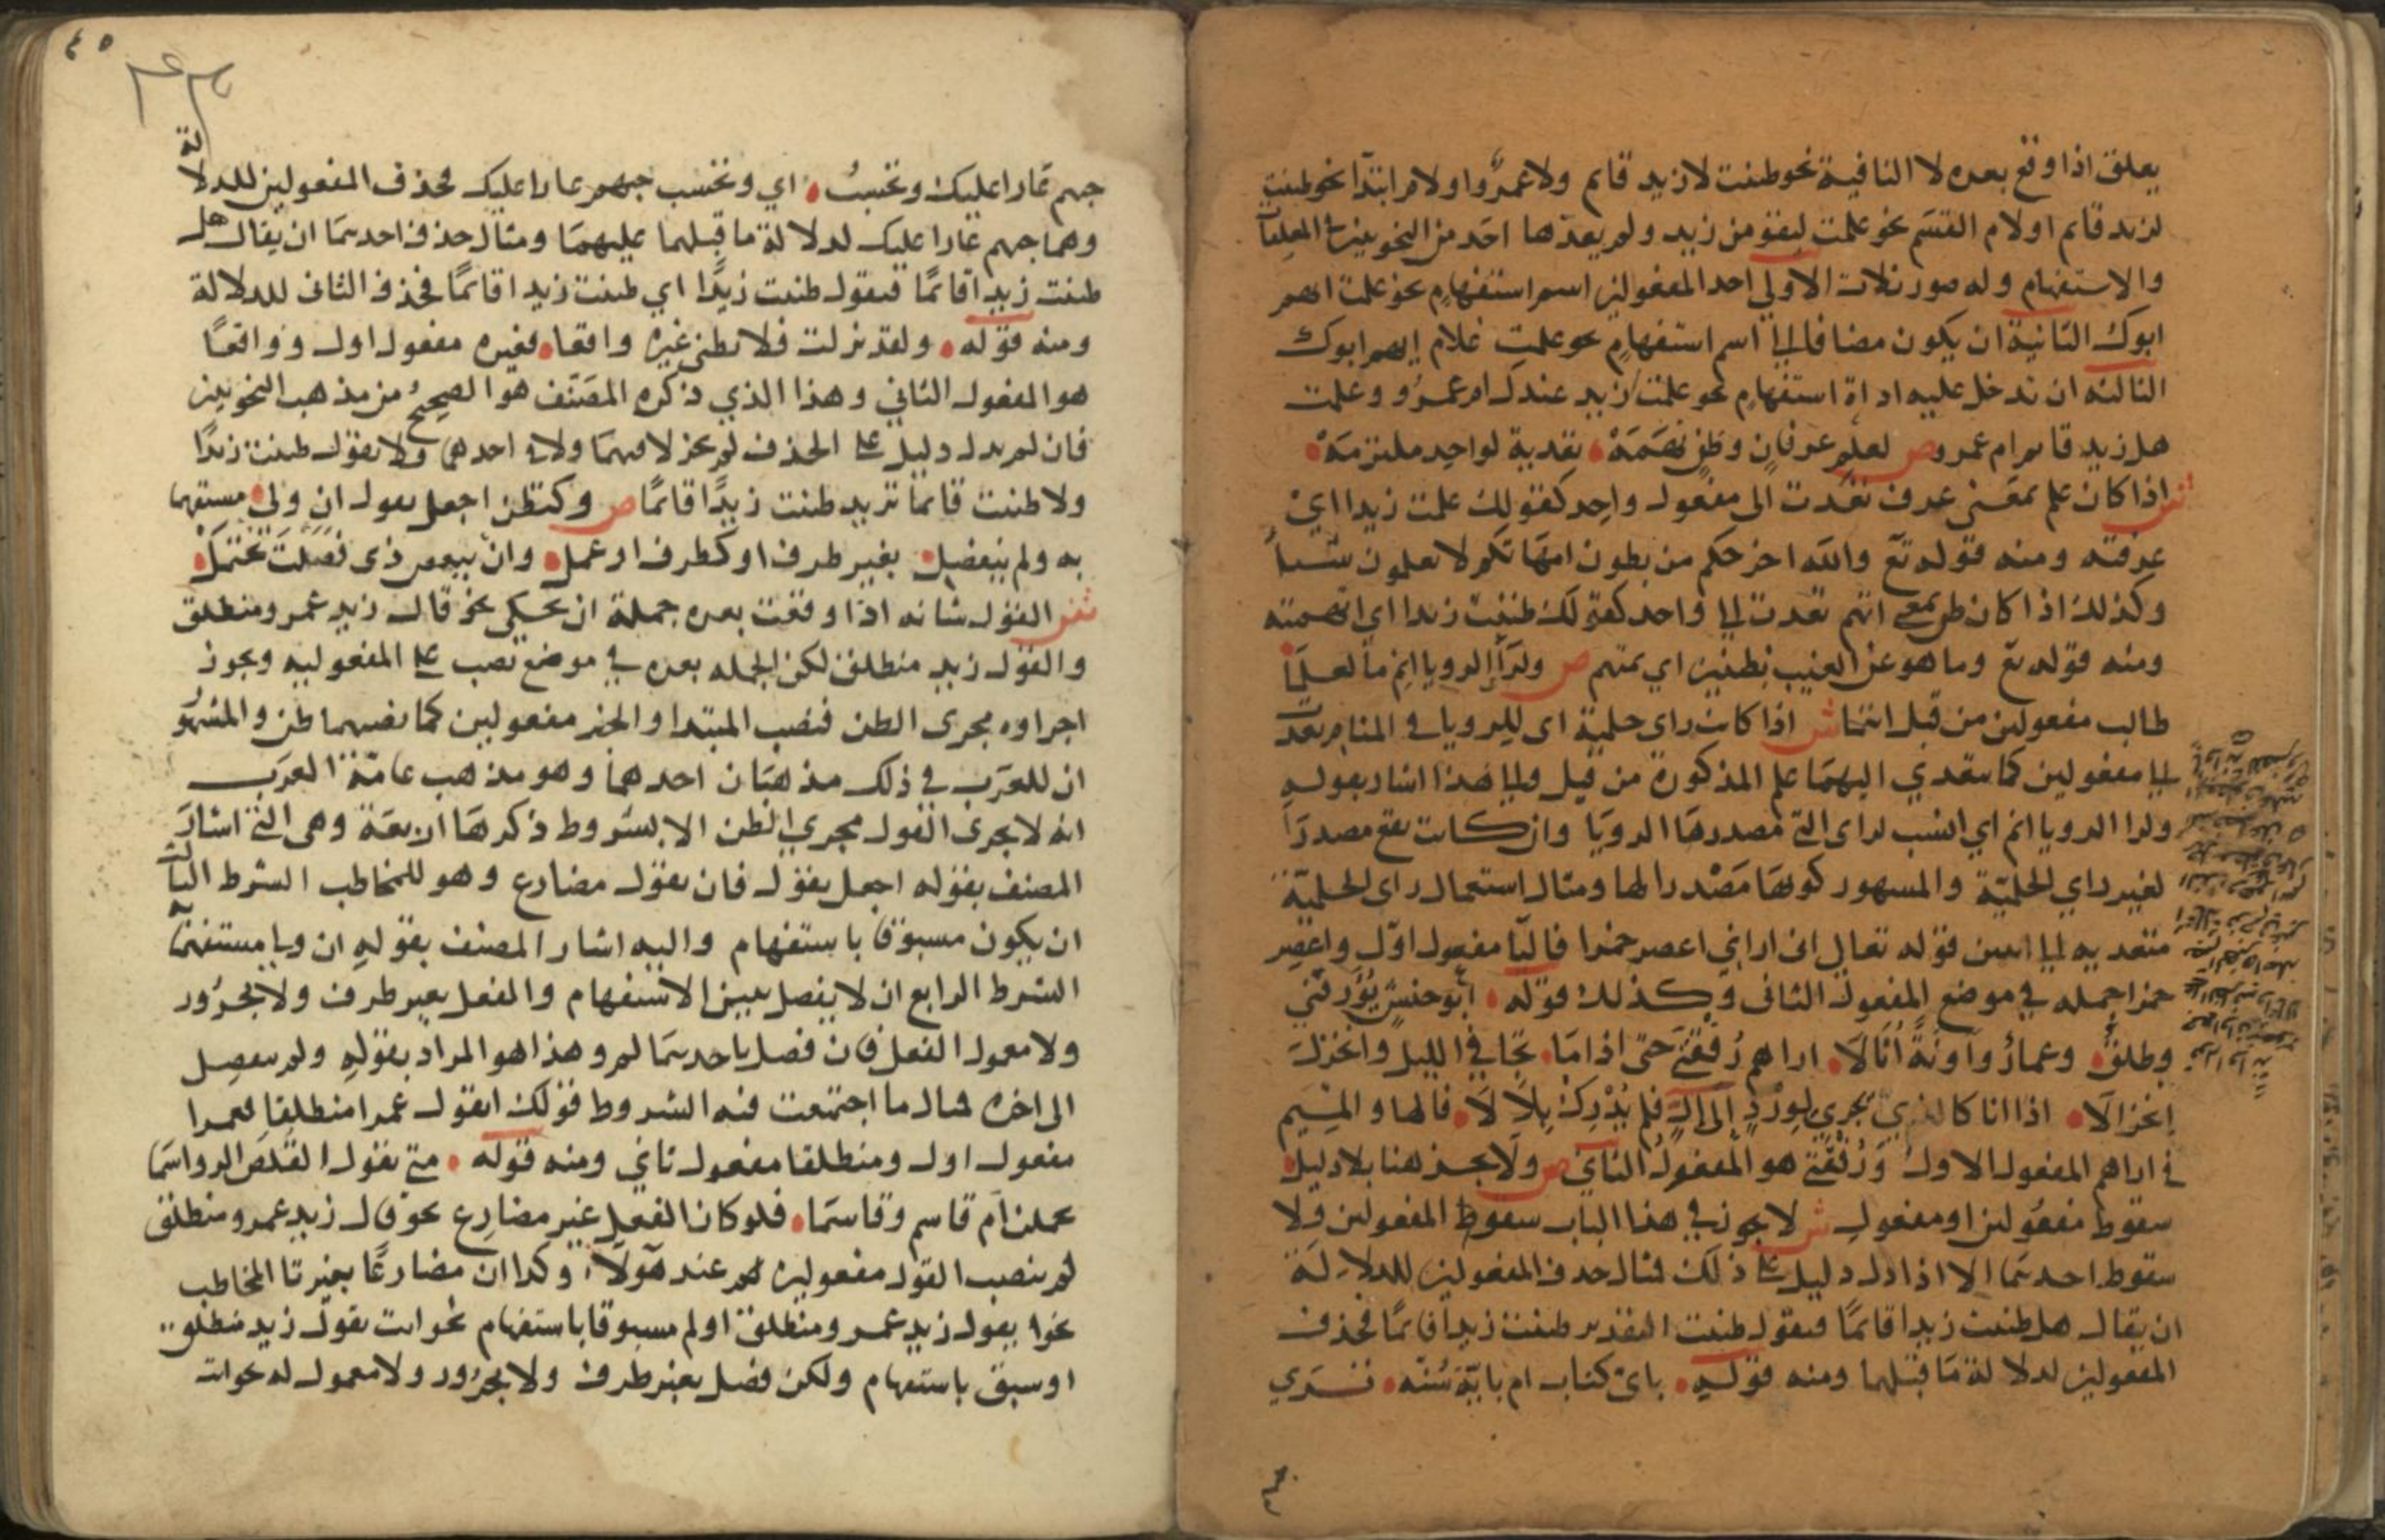 يعلق اذا وقع بعده لا النافية نحو ظننت لا زيد قايم ولا عمرو او لام ابتدا نحو ظننت
لزيد قايم او لام القسم نحو علمت ليقومن زيد ولم يعدها احد من النحويين في المعلقات
والاستفهام وله صور ثلاث الاولي احد المفعولين اسم استفهام نحو علمت ايهم
ابوك الثانية ان يكون مضافا الي اسم استفهام نحو علمت غلام ايهم ابوك
الثالثه ان تدخل عليه اداة استفهام نحو علمت ازيد عندك ام عمرو وعلمت
هل زيد قايم ام عمرو ص لعلم عرفان وظن تهمه تعدية لواحد ملتزمه
ش اذا كان علم بمعنى عرف تعدت الى مفعول واحد كقولك علمت زيدا اي
عرفته ومنه قوله تع والله اخرجكم من بطون امهاتكم لا تعلمون شيئا
وكذلك اذا كان ظن بمعى اتهم تعدت الي واحد كقولك ظننت زيدا اي اتهمته
ومنه قوله تع وما هو عن الغيب بظنين اي بمتهم ص ولراي الرويا انم ما لعلما
طالب مفعولين من قبل انتما ش اذا كانت راى حلمية اى للرويا في المنام تعدت
الي مفعولين كما تتعدي اليهما علم المذكورة من قبل والي هذا اشار بقوله
ولرا الرويا انم اي انسب لراى التي مصدرها الرويا وان كانت تقع مصدرا
لغير راي الحلمية والمشهور كونها مصدرا لها ومثال استعمال راى الحلمية
متعديه الي اثنين قوله تعالى انى اراني اعصر خمرا فاليا مفعول اول واعصر
خمرا جمله في موضع المفعول الثانى وكذلك قوله ابو حنش يؤرقني
وطلق وعمار وآونة اثالا اراهم رفقتي حتى اذا ما تجافي الليل وانخزل
انخزالا اذا انا كالذي يجري لورد الى ال فلم يدرك بلالا فالها والميم
في اراهم المفعول الاول ورفقتي هو المفعول الثاني ص ولا تجز هنا بلا دليل
سقوط مفعولين او مفعول ش لا يجوز في هذا الباب سقوط المفعولين ولا
سقوط احدهما الا اذا دل دليل على ذلك فمثال حذف المفعولين للدلالة
ان يقال هل ظننت زيدا قائما فتقول ظننت التقدير ظننت زيدا قائما فحذف
المفعولين لدلالة ما قبلهما ومنه قوله باى كتاب ام باية سنه ترى
٤٥
جهم عارا عليك وتحسب اي وتحسب جهم عارا عليك فحذف المفعولين للدلالة
وهما جهم عارا عليك لدلالة ما قبلهما عليهما ومثال حذف احدهما ان يقال هل
ظننت زيدا قائما فتقول ظننت زيدا اي ظننت زيدا قائما فحذف الثانى للدلالة
ومنه قوله ولقد نزلت فلا تظني غيره واقعا فغيره مفعول اول وواقعا
هو المفعول الثاني وهذا الذي ذكره المصنف هو الصحيح من مذهب النحويين
فان لم يدل دليل على الحذف لم يجز لا فيهما ولا في احدهما ولا تقول ظننت زيدا
ولا ظننت قائما تريد ظننت زيدا قائما ص وكتظن اجعل تقول ان ولي مستفهما
به ولم ينفصل بغير ظرف او كظرف او عمل وان ببعض ذى فصلت تحتمل
ش القول شانه اذا وقعت بعده جملة ان تحكي نحو قال زيد عمرو منطلق
والقول زيد منطلق لكن الجمله بعده في موضع نصب على المفعوليه ويجوز
اجراوه مجرى الظن فنصب المبتدا والخبر مفعولين كما نصبهما ظن والمشهور
ان للعرب في ذلك مذهبان احدهما وهو مذهب عامة العرب
انه لا يجرى القول مجري الظن الا بشروط ذكرها اربعة وهى التي اشار
المصنف بقوله اجعل بقول فان تقول مضارع وهو للمخاطب الشرط الثالث
ان يكون مسبوقا باستفهام واليه اشار المصنف بقوله ان ولي مستفهما
الشرط الرابع ان لا يفصل بين الاستفهام والفعل بغير ظرف ولا مجرور
ولا معمول الفعل فان فصل باحدهما لم وهذا هو المراد بقوله ولم ينفصل
الى اخره مثال ما اجتمعت فيه الشروط قولك اتقول عمرا منطلقا فعمرا
مفعول اول ومنطلقا مفعول ثاني ومنه قوله متي تقول القلص الرواسما
يحملن ام قاسم وقاسما فلو كان الفعل غير مضارع نحو قال زيد عمرو منطلق
لم ينصب القول مفعولين لهم عند هولاء وكذا ان مضارعا بغير تا المخاطب
نحو يقول زيد عمرو منطلق او لم مسبوقا باستفهام نحو انت تقول زيد منطلق
او سبق باستفهام ولكن فصل بغير ظرف ولا مجرور ولا معمول له نحو انت